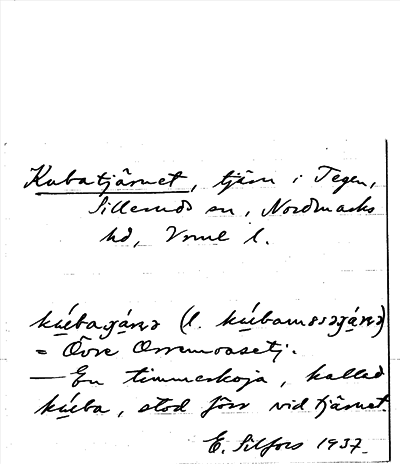 Kubatjärnet, tjärn i Tegen,
Silleruds sn, Nordmarks
hd, Vrml l.
(l.
= Övre Orrmosetj.
— En timmerkoja, kallad
kúba, stod förr vid tjärnet.
E. Silfors 1937.